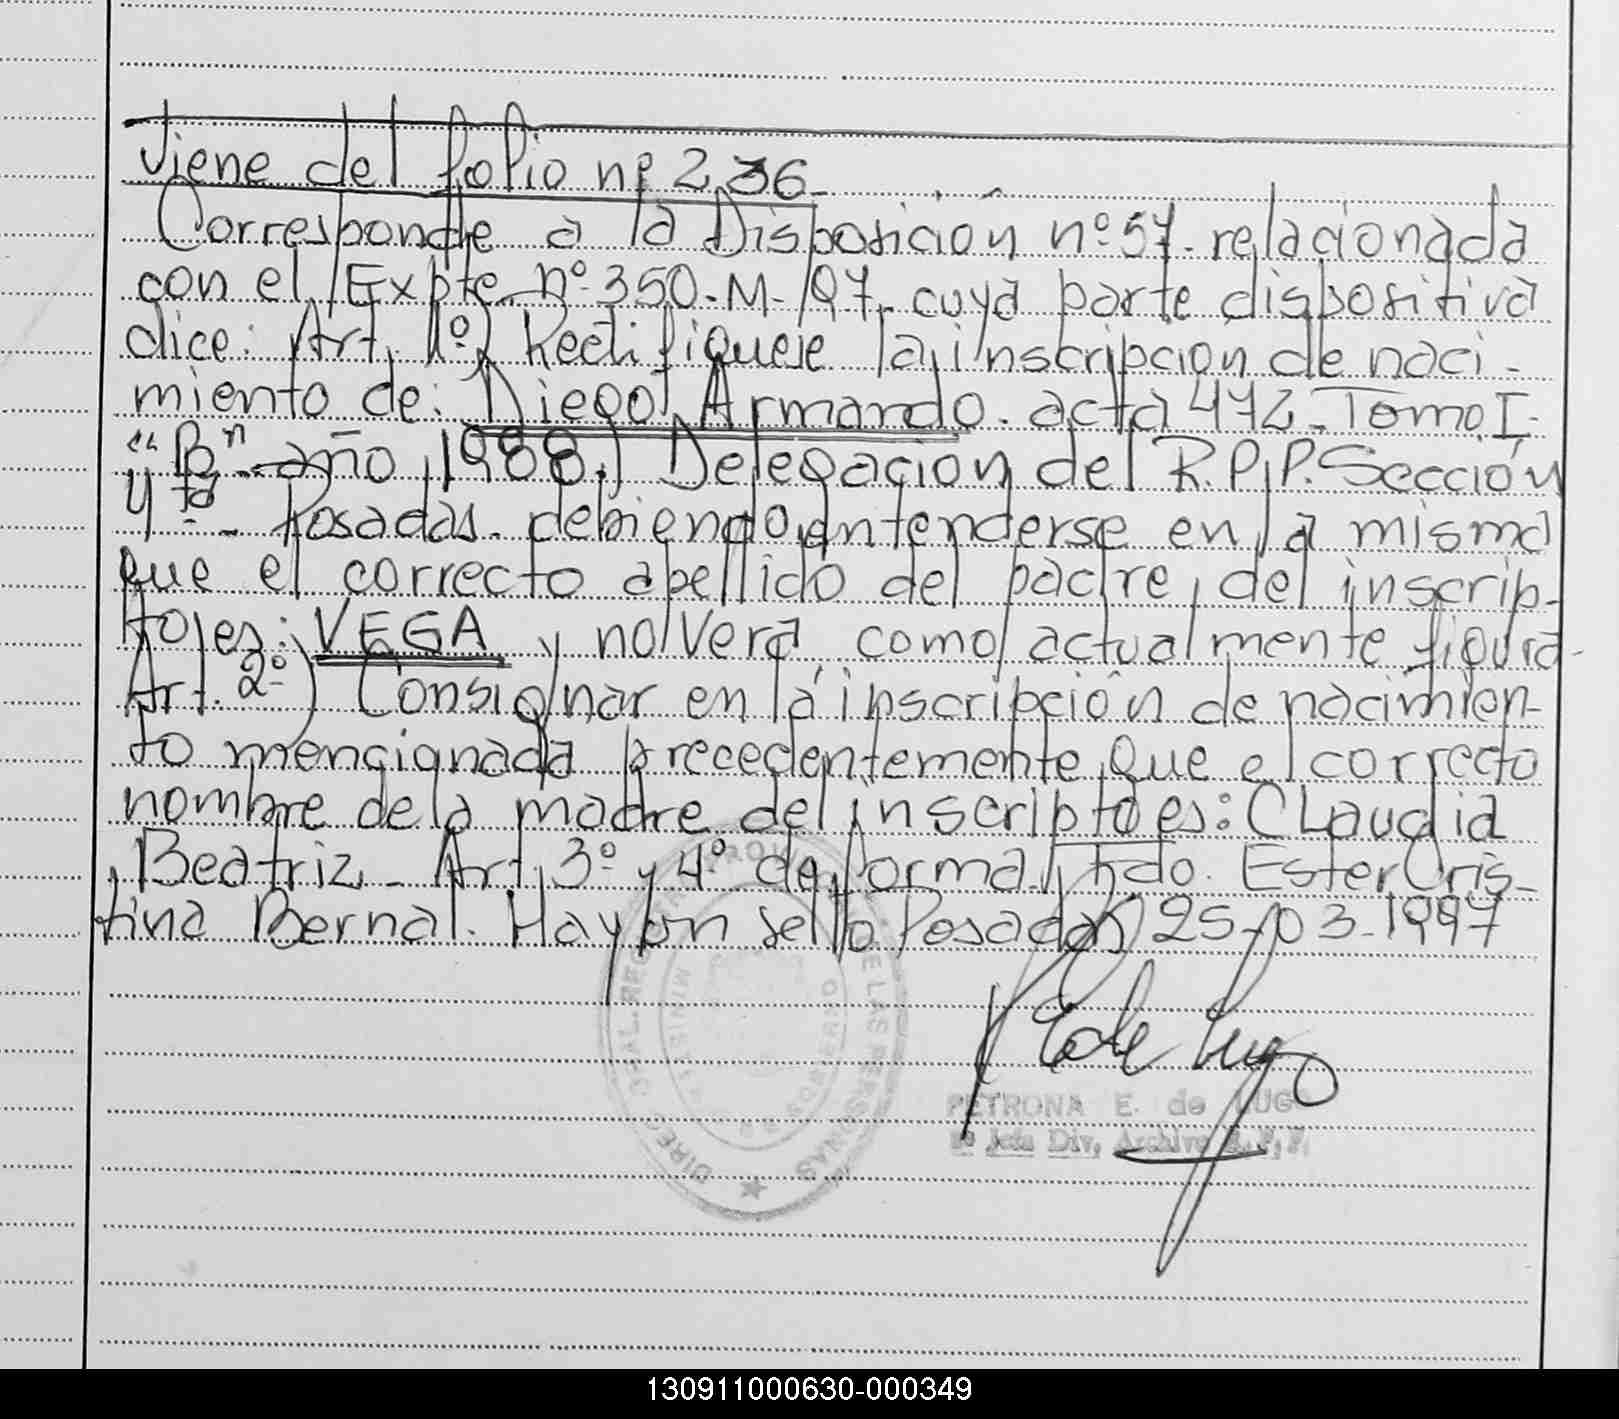 Viene del folio nº 236.
Corresponde a la Disposición nº 57. relacionada
con el Expte nº 350-M-/97. cuya parte dispositiva
dice: Art. 1º) Rectifiquese la inscripcion de naci-
miento de: Diego Armando. acta 472 - Tomo I
"B" - año 1988.) Delegacion del R.P.P. Sección
4ta - Posadas. debiendo entenderse en la misma
que el correcto apellido del padre, del inscrip-
to es: VEGA y no Vera como actualmente figura-
Art. 2º) Consignar en la inscripción de nacimien-
to mencionada precedentemente que el correcto
nombre de la madre del inscripto es: CLaudia
Beatriz - Art. 3º y 4º de forma. Fdo. Ester Cris-
tina Bernal. Hay un sello Posadas 25-03-1997
PETRONA E. de LUGO
Jefa Div. Archivo R. P. P.
130911000630-000349